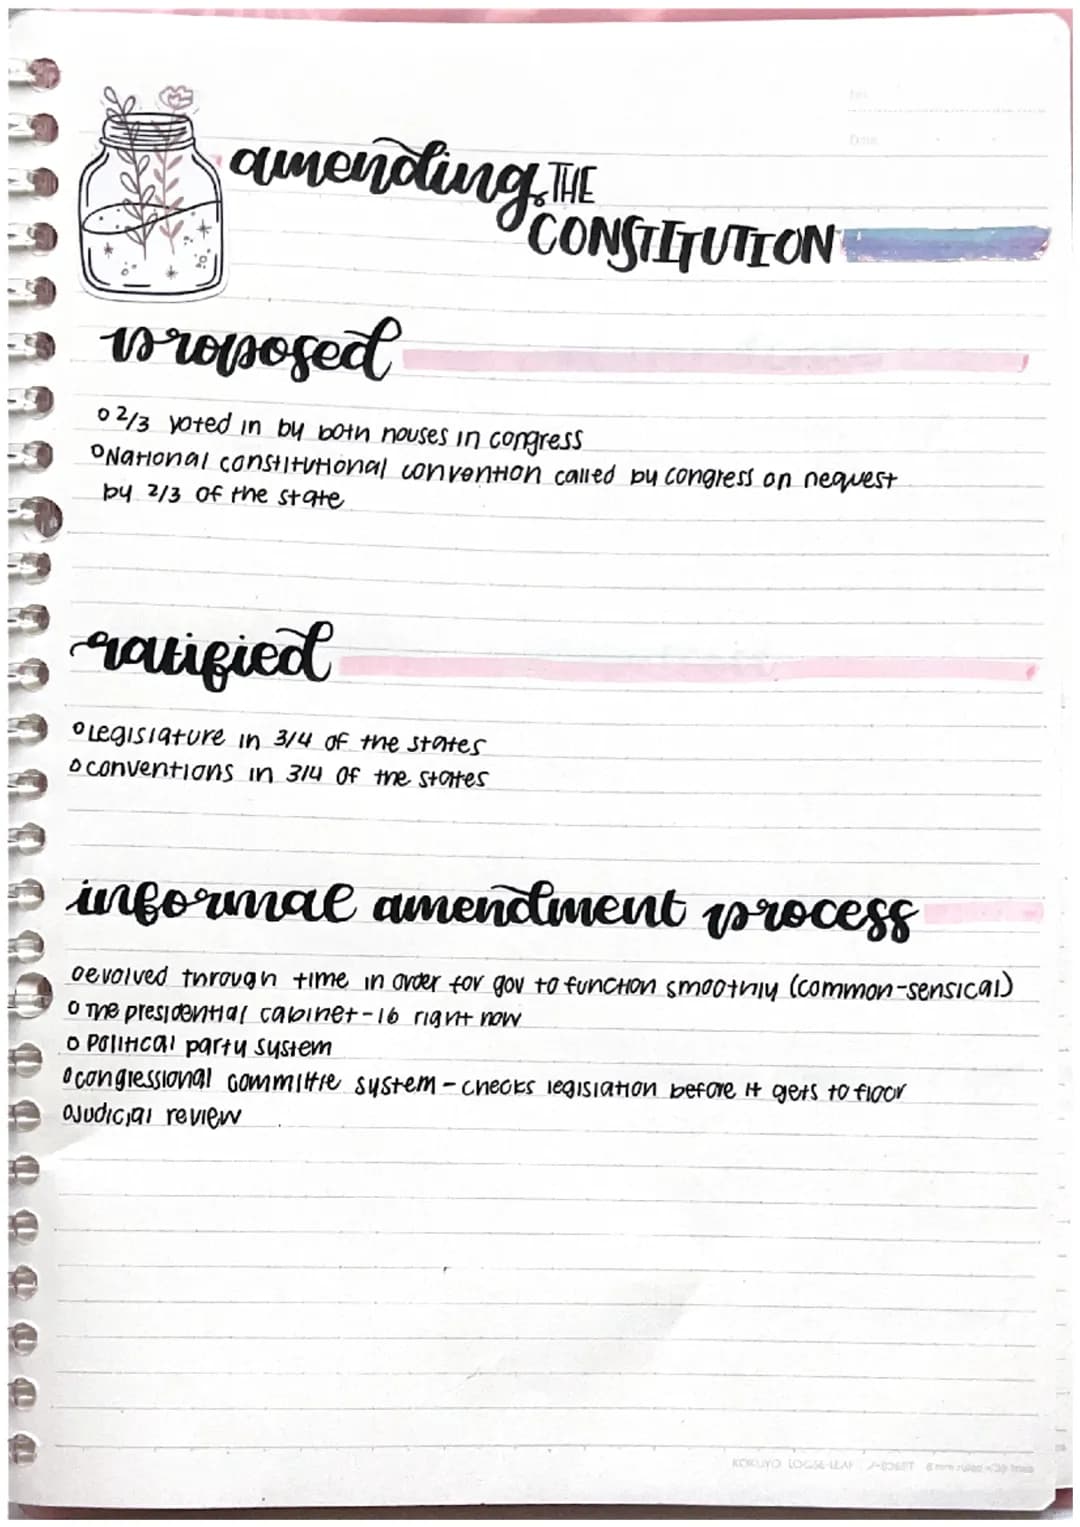 amending THE
CONSTITUTION
proposed
o 2/3 voted in by both houses in congress
o National constitutional convention called by congress on request
by 2/3 of the state
ratified
o Legislature in 3/4 of the states
o conventions in 3/4 of the states
informal amendment process
o evolved through time in order for gov to function smoothly (common-sensical)
o The presidential cabinet - 16 right now
o Political party system
o congressional committie system - checks legislation before it gets to floor
o Judicial review
KOKUYO LOOSE-LEAF